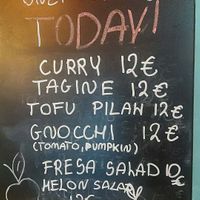 TODAY!
CURRY 12€
TAGINE 12€
TOFU PILAN 12€
GNOCCHI 12€
(TOMATO, PUMPKIN)
FRESA SALAD 10€
MELON SALAD
12€